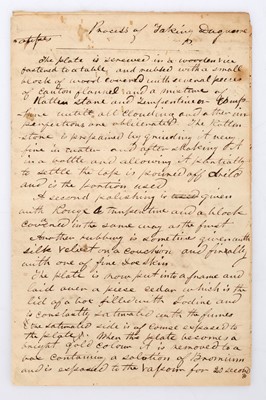 Process of Taking Daguerre
otypes
The plate is screwed in a wooden vice
fastened to a table and rubbed with a small
block of wood covered with several pieces
of canton flannel and a mixture of
Rotten Stone and turpentine or Camp
hine untill all clouding and other im
perfections are obliterated. The Rotten
stone is prepared by grinding it very
fine in water and after shaking it
in a bottle and allowing it partially
to settle the top is poured off
and is the portion used
A second polishing is given
with Rouge & turpentine and a block
covered in the same way as the first
Another rubbing is sometime given with
silk velvet on a cushion and finally
with one of fine doeskin
The plate is now put into a frame and
laid over a piece sedar which is the
lid of a box filled with Iodine and
is constantly saturated with the fumes
The saturated side is of course exposed to
the plate. When the plate becomes a
bright gold colour it is removed to a
box containing a solution of Bromium
and is exposed to the vapour for 20 seconds